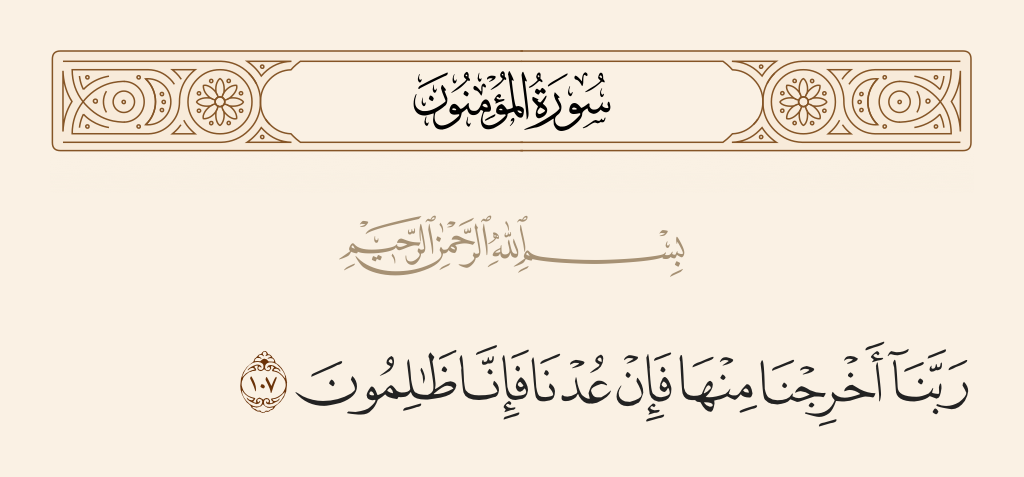 سُورَةُ المُؤْمِنُونَ
بِسْمِ ٱللَّهِ ٱلرَّحْمَٰنِ ٱلرَّحِيمِ
رَبَّنَآ أَخْرِجْنَا مِنْهَا فَإِنْ عُدْنَا فَإِنَّا ظَٰلِمُونَ ١٠٧